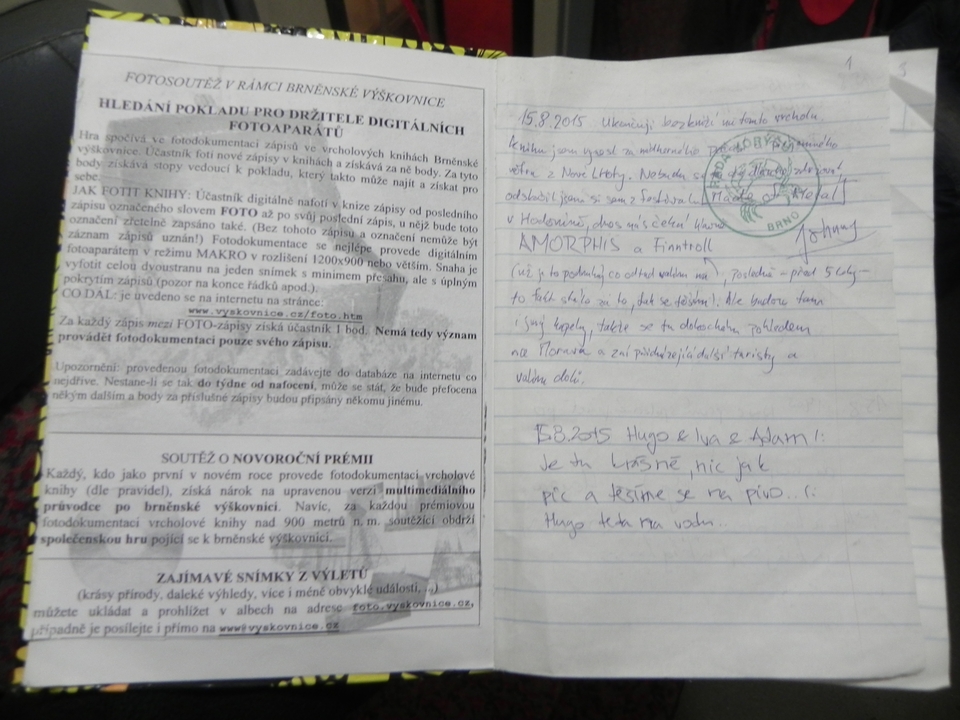 FOTOSOUTĚŽ V RÁMCI BRNĚNSKÉ VÝŠKOVNICE
HLEDÁNÍ POKLADU PRO DRŽITELE DIGITÁLNÍCH
FOTOAPARÁTŮ
Hra spočívá ve fotodokumentaci zápisů ve vrcholových knihách Brněnské
výškovnice. Účastník fotí nové zápisy v knihách a získává za ně body. Za tyto
body získává stopy vedoucí k pokladu, který takto může najít a získat pro
sebe.
JAK FOTIT KNIHY: Účastník digitálně nafotí v knize zápisy od posledního
zápisu označeného slovem FOTO až po svůj poslední zápis, u nějž bude toto
označení zřetelně zapsáno také. (Bez tohoto zápisu a označení nemůže být
záznam zápisů uznán!) Fotodokumentace se nejlépe provede digitálním
fotoaparátem v režimu MAKRO v rozlišení 1200x900 nebo větším. Snaha je
vyfotit celou dvoustranu na jeden snímek s minimem přesahu, ale s úplným
pokrytím zápisů (pozor na konce řádků apod.).
CO DÁL: je uvedeno se na internetu na stránce:
www.vyskovnice.cz/foto.htm
Za každý zápis mezi FOTO-zápisy získá účastník 1 bod. Nemá tedy význam
provádět fotodokumentaci pouze svého zápisu.
Upozornění: provedenou fotodokumentaci zadávejte do databáze na internetu co
nejdříve. Nestane-li se tak do týdne od nafocení, může se stát, že bude přefocena
někým dalším a body za příslušné zápisy budou připsány někomu jinému.
SOUTĚŽ O NOVOROČNÍ PRÉMII
Každý, kdo jako první v novém roce provede fotodokumentaci vrcholové
knihy (dle pravidel), získá nárok na upravenou verzi multimediálního
průvodce po brněnské výškovnici. Navíc, za každou prémiovou
fotodokumentaci vrcholové knihy nad 900 metrů n. m. soutěžící obdrží
společenskou hru pojící se k brněnské výškovnici.
ZAJÍMAVÉ SNÍMKY Z VÝLETŮ
(krásy přírody, daleké výhledy, více i méně obvyklé události, ...)
můžete ukládat a prohlížet v albech na adrese foto.vyskovnice.cz,
případně je posílejte i přímo na www@vyskovnice.cz
1
3
15.8.2015 Ukončuji bezknižní na tomto vrcholu
knihu jsem vynesl za nádherného
větru z Nové Lhoty.
odskočil jsem si sem z festivalu Masters of Metal
v Hodoníně, dnes nás čeká hlavně
Johnny
AMORPHIS a Finntroll
(už je to podruhé, co odtud valím na, poslední – před 5 lety –
to fakt stálo za to, tak se těším!. Ale budou tam
i jiný kapely, takže se tu dokochám pohledem
na Moravu a zní přicházející další turisty a
valím dolů.
BRNO
15.8.2015 Hugo & Iva & Adam!:
Je tu krásně, nic jak
pic a těšíme se na pivo..(:
Hugo teta na vodu..